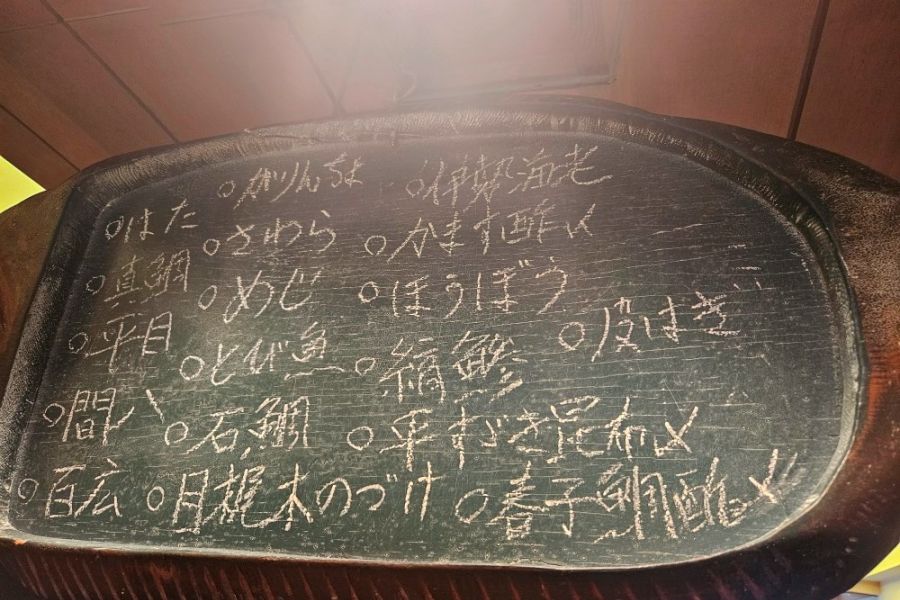 ○がりんちょ ○伊勢海老
○はた ○さわら ○かます酢〆
○真鯛 ○めじ ○ほうぼう
○平目 ○とび魚 ○縞鯵 ○皮はぎ
○間八 ○石鯛 ○平すゞき昆布〆
○百広 ○目梶木のづけ ○春子鯛酢〆